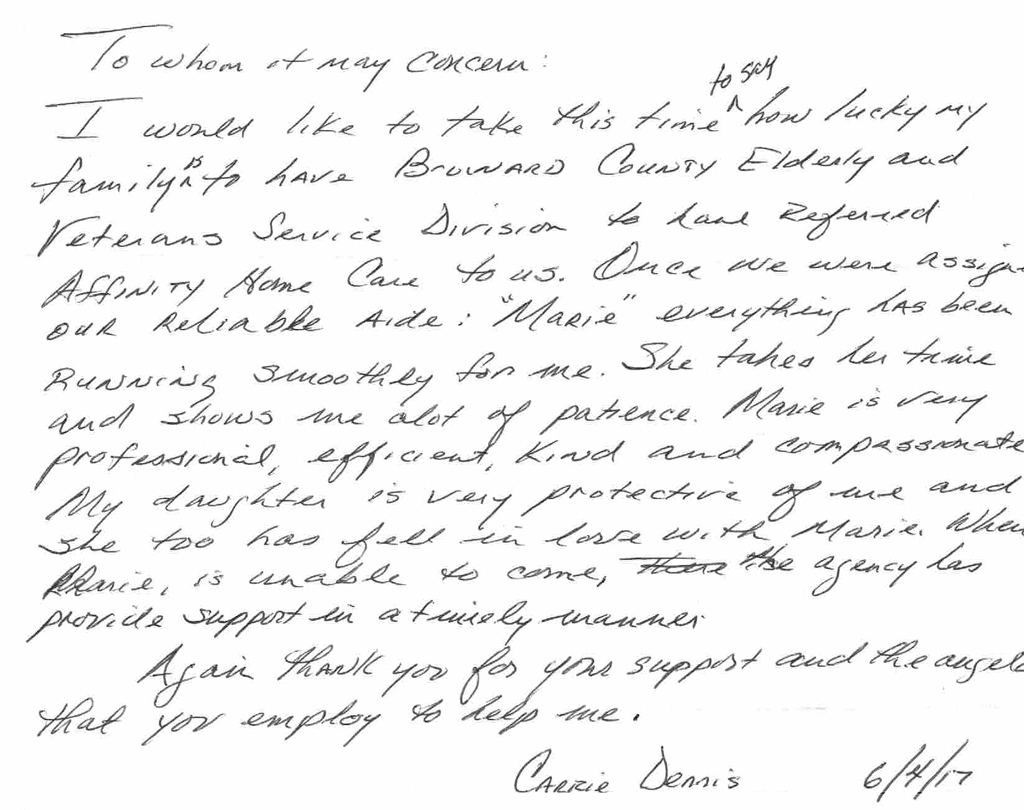 To whom it may concern:
to say
I would like to take this time ^ how lucky my
family is to have Broward County Elderly and
Veterans Service Division to have Referred
Affinity Home Care to us. Once we were assign
our Reliable Aide: "Marie" everything has been
Running smoothly for me. She takes her time
and shows me alot of patience. Marie is very
professional, efficient, kind and compassionate
My daughter is very protective of me and
she too has fell in love with Marie. When
Marie, is unable to come, the agency has
provide support in a timely manner.
Again thank you for your support and the angels
that you employ to help me.
Carrie Dennis 6/4/17